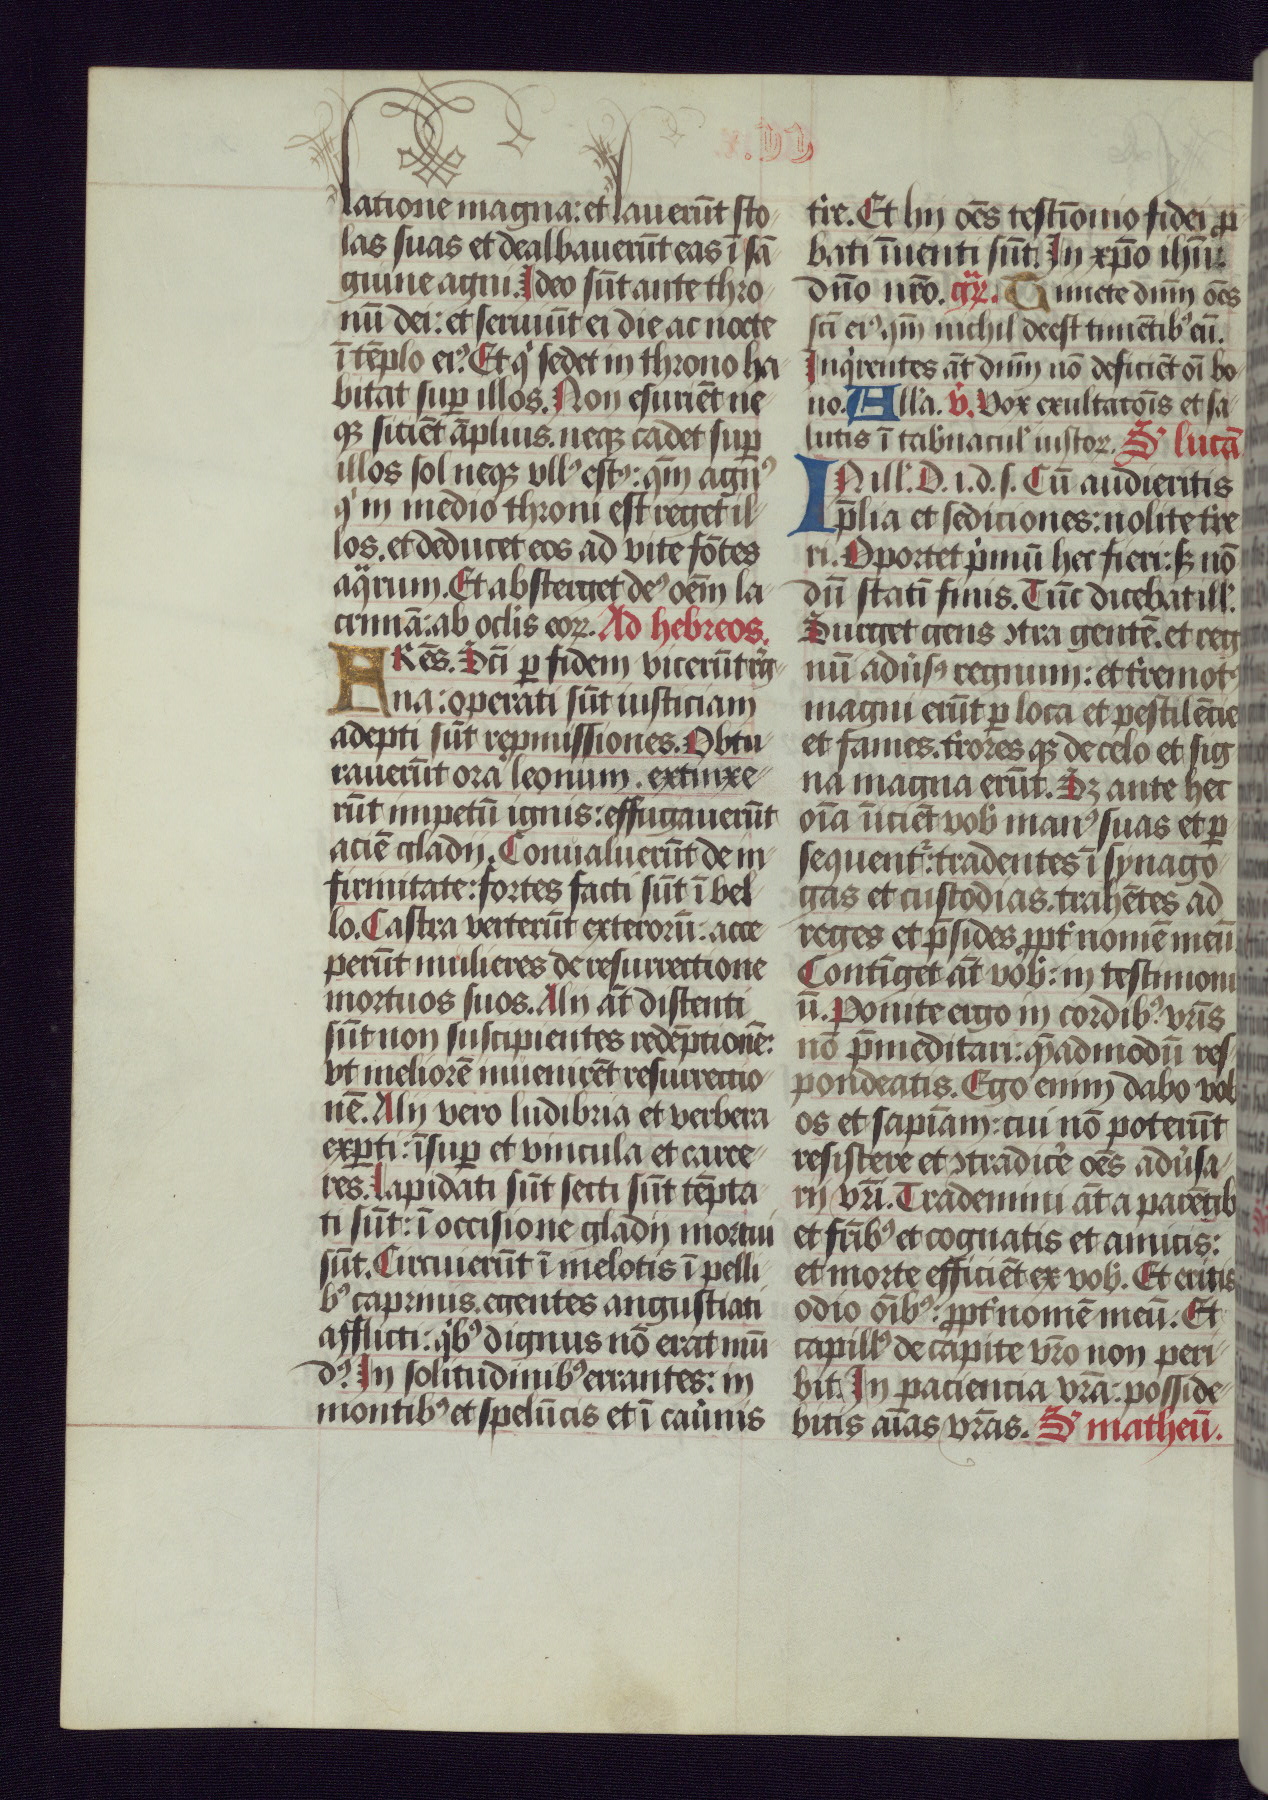 latione magna: et lauerūt sto
las suas et dealbauerūt eas ī sā
guine agni. Ideo sūt ante thro
nū dei: et seruiūt ei die ac nocte
ī tēplo ei⁹. Et qͥ sedet in throno ha
bitat suꝑ illos. Non esuriēt ne
qꝫ sitiēt āplius. neqꝫ cadet suꝑ
illos sol neqꝫ vll⁹ est⁹: qm̄ agn⁹
qͥ in medio throni est reget il
los. et deducet eos ad vite fōtes
aq̈rum. Et absterget de⁹ oēm la
crimā: ab oclis eoꝝ. Ad hebreos.
FRēs. Scī ꝑ fidem vicerūt rēg
na: operati sūt iusticiam
adepti sūt repmissiones. Obtu
rauerūt ora leonum. extinxe
rūt impetū ignis: effugauerūt
aciē gladij. Conualuerūt de in
firmitate: fortes facti sūt ī bel
lo. Castra verterūt exterorū: acce
perūt mulieres de resurrectione
mortuos suos. Alij āt distenti
sūt non suscipientes redēptionē:
vt meliorē inuenirēt resurrectio
nē. Alij vero ludibria et verbera
exꝑti: īsuꝑ et vincula et carce
res. Lapidati sūt secti sūt tēpta
ti sūt: ī occisione gladij mortui
sūt. Circuierūt ī melotis ī pelli
b⁹ caprinis. egentes angustiati
afflicti: qͥb⁹ dignus nō erat mū
d⁹. In solitudinib⁹ errantes: in
montib⁹ et spelūcis et ī cauͥnis
tr̄e. Et hij oēs testīonio fidei ꝓ
bati īuenti sūt. In xp̄o ihū.
dn̄o nr̄o. gr̄. Timete dnm̄ oēs
scī ei⁹. qm̄ nichil deest timētib⁹ eū.
Inqͥrentes āt dnm̄ nō deficiēt oī bo
no. Alla. v̄. Vox exultatōis et sa
lutis ī tab̾nacul' iustoꝝ. S lucā
IN ill'. D. i. d. s. Cū audieritis
p̄lia et sediciones: nolite tr̄e
ri. Oportet p̾mū hec fieri: sꝫ nō
dū statī finis. Tūc dicebat ill'.
Surget gens ↄtra gentē. et reg
nū adūs⁹ regnum: et tr̄emot⁹
magni erūt ꝑ loca et pestilēcie
et fames. tr̄ores qꝫ de celo et sig
na magna erūt. Sꝫ ante hec
oīa īiciēt vob̄ man⁹ suas et ꝑ
sequent̄: tradentes ī synago
gas et custodias. trahētes ad
reges et p̄sides ꝓpt̄ nomē meū
Contīget āt vob̄: in testimoni
ū. Ponite ergo in cordib⁹ vr̄is
nō p̄meditari: q̄admodū res
pondeatis. Ego enim dabo vob̄
os et sapīam: cui nō poterūt
resistere et ↄtradic̾e oēs adūsa
rij vr̄i. Trademini āt a parētib
et fr̄ib⁹ et cognatis et amicis:
et morte efficiēt ex vob̄. Et eritis
odio ōib⁹: ꝓpt̄ nomē meū. Et
capill⁹ de capite vr̄o non peri
bit. In paciencia vr̄a: posside
bitis aīas vr̄as. S matheū.